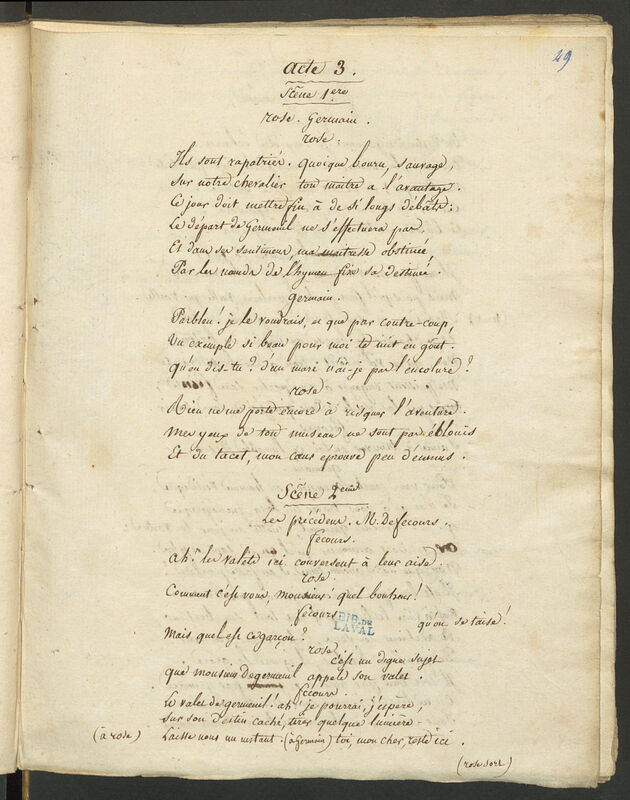 29
Acte 3.
Scène 1ere
rose. Germain.
rose.
Ils sont rapatriés. quoique bouru, sauvage,
Sur notre chevalier ton maitre a l'avantage.
Ce jour doit mettre fin à de si longs débats:
Le départ de Germeuil ne s'effectuera pas,
Et dans ses sentimens, ma maitresse obstinée
Par les nœuds de l'hymen fixe sa destinée.
Germain.
Parbleu! je le voudrais, et que par contre-coup,
Un exemple si beau pour moi te mit en goût.
qu'en dis-tu? d'un mari n'ai-je pas l'encolure?
rose
Rien ne me porte encore à risquer l'aventure.
Mes yeux de ton museau ne sont pas éblouis
Et du tacet, mon cœur éprouve peu d'ennuis.
Scène 2eme
Les précédens. M. De fecours.
fecours.
ah! les valets ici conversent à leur aise.
rose.
Comment c'est vous, monsieur! quel bonheur!
fecours
qu'on se taise!
Mais quel est ce garçon?
BIB. DE LAVAL
rose
c'est un digne sujet
que monsieur de germeuil appele son valet.
fecours.
Le valet de germeuil! ah! je pourrai, j'espère,
Sur son destin caché, tirer quelque lumière.
(à rose) Laisse nous un instant. (à Germain) toi, mon cher, reste ici.
(rose sort)